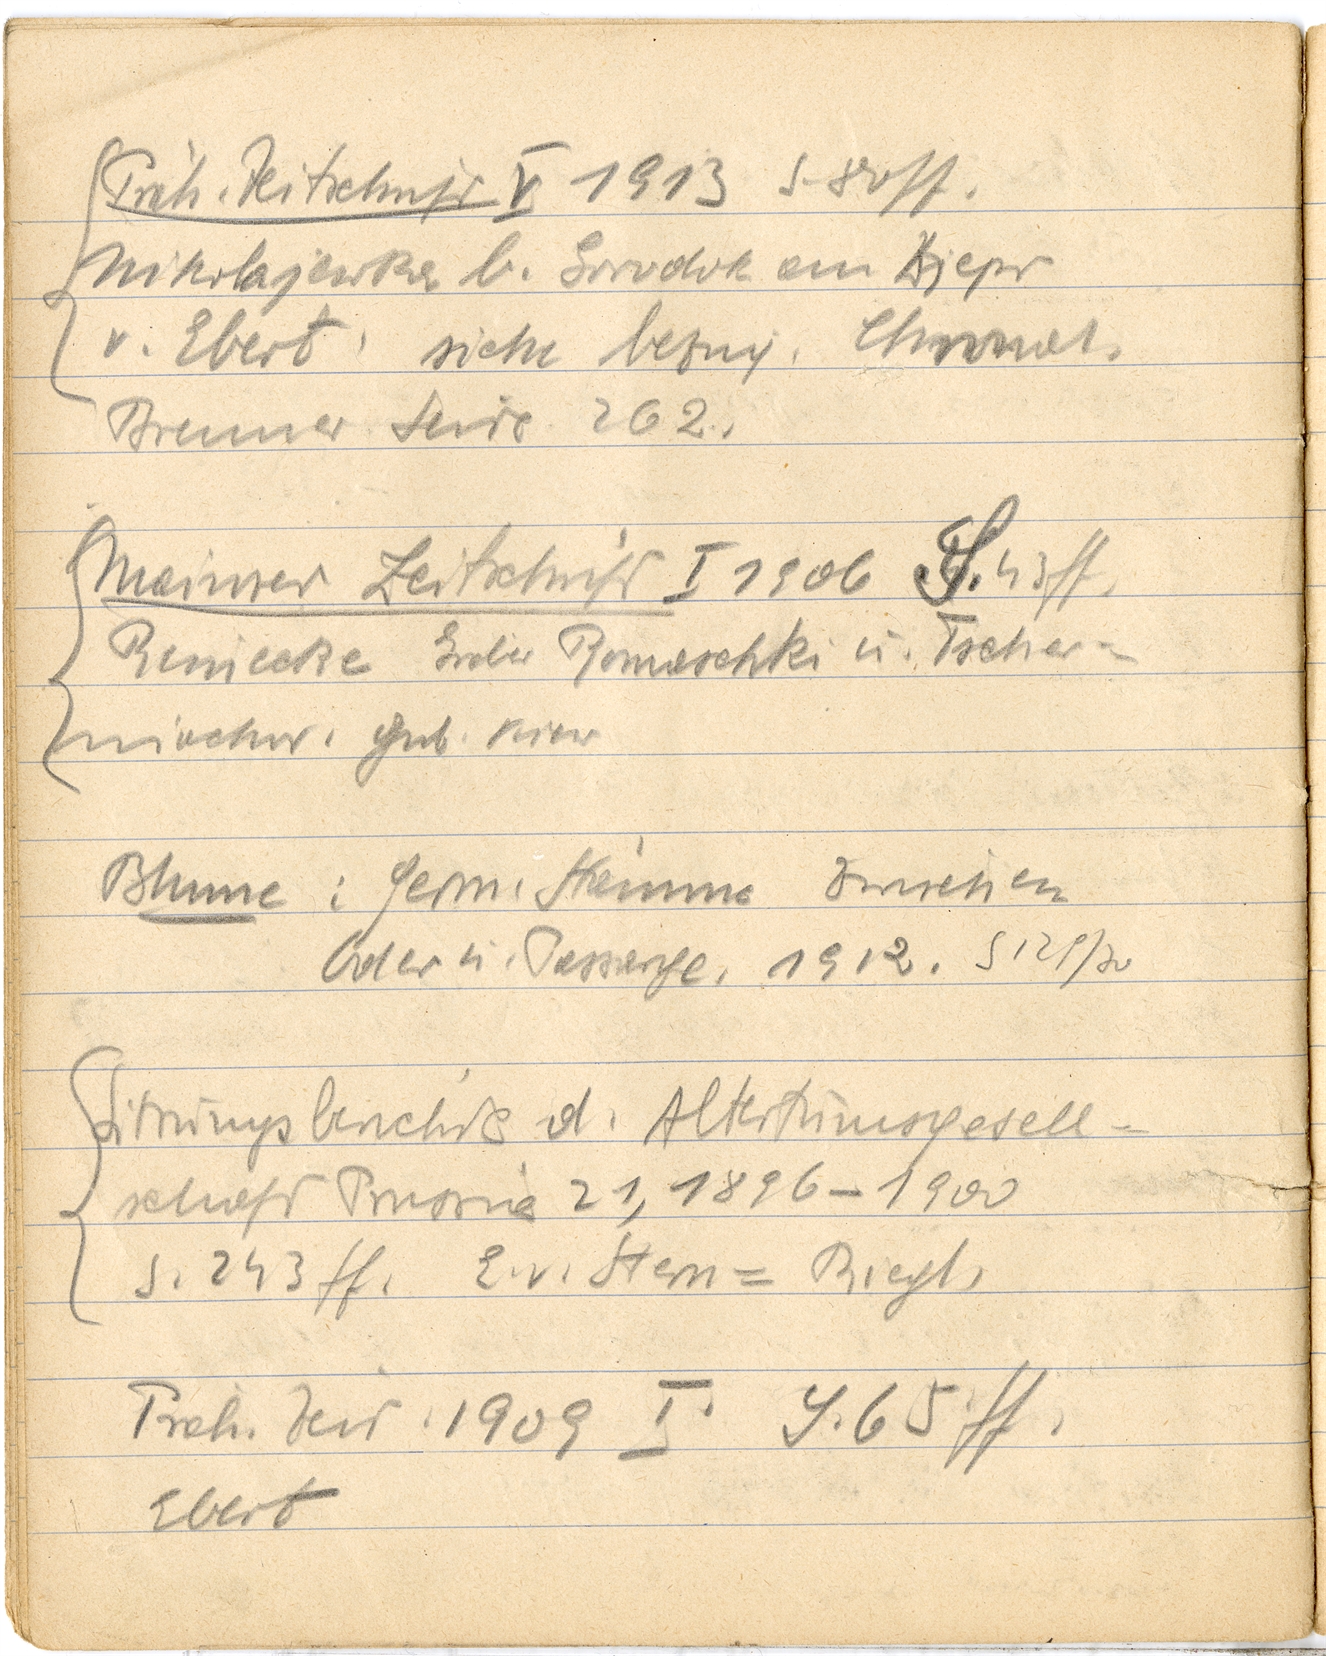 Präh. Zeitschrift V 1913 S. 80ff.
Nikolajewka b. Gorodok am Djepr
v. Ebert, siehe bezüg. Chronol.
Brenner Seite 262.
Mainzer Zeitschrift I 1906 S. 43ff.
Reinecke Gräber Romaschki u. Tscher=
niachow. Gub. Kiew
Blume : Germ. Stämme zwischen
Oder u. Passarge. 1912. S 129/30
Sitzungsberichte d. Altertumsgesell-
schaft Prussia 21, 1896-1900
S. 243 ff. E. v. Stern = Riegl.
Präh. Zeit. 1909 I. S. 65 ff.
Ebert